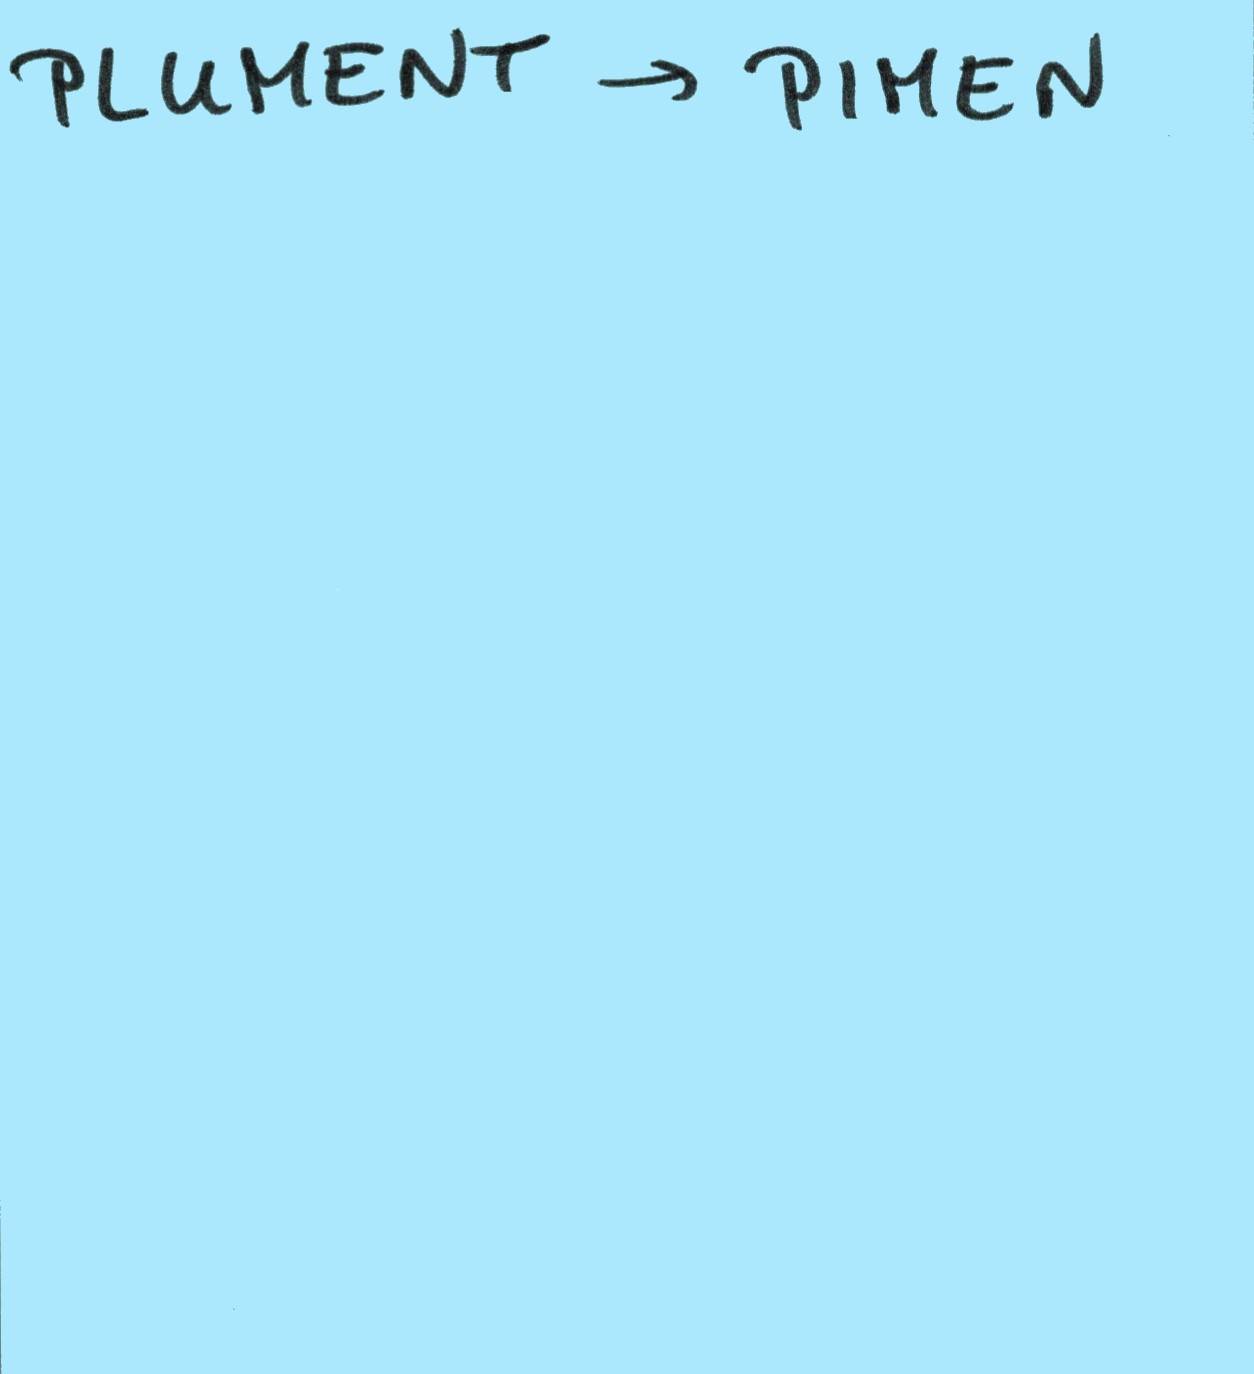 PLUMENT → PIMEN